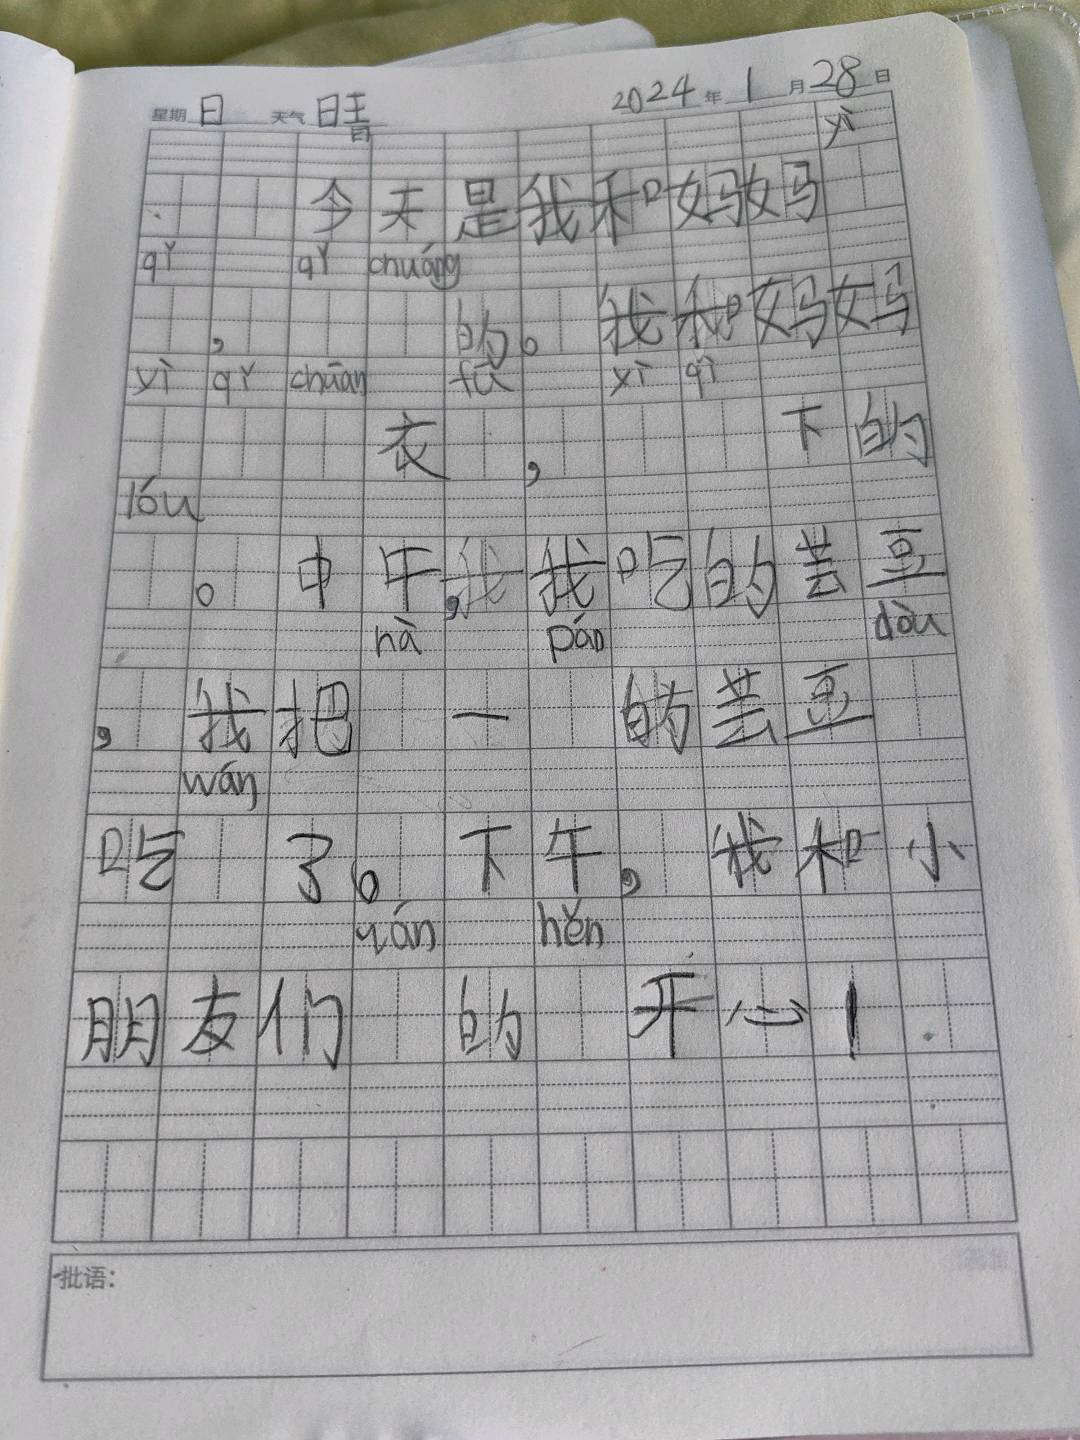 星期 日 天气 晴 2024 年 1 月 28 日
yì
今天是我和妈妈
qǐ qǐ chuáng
, 的。我和妈妈
yì qǐ chuān fu yì qǐ
衣 , 下的
lóu
。中午,我我吃的芸豆
nà pán dòu
,我把 一 的芸豆
wán
吃 了。下午,我和小
yán hěn
朋友们 的 开心!
批语: